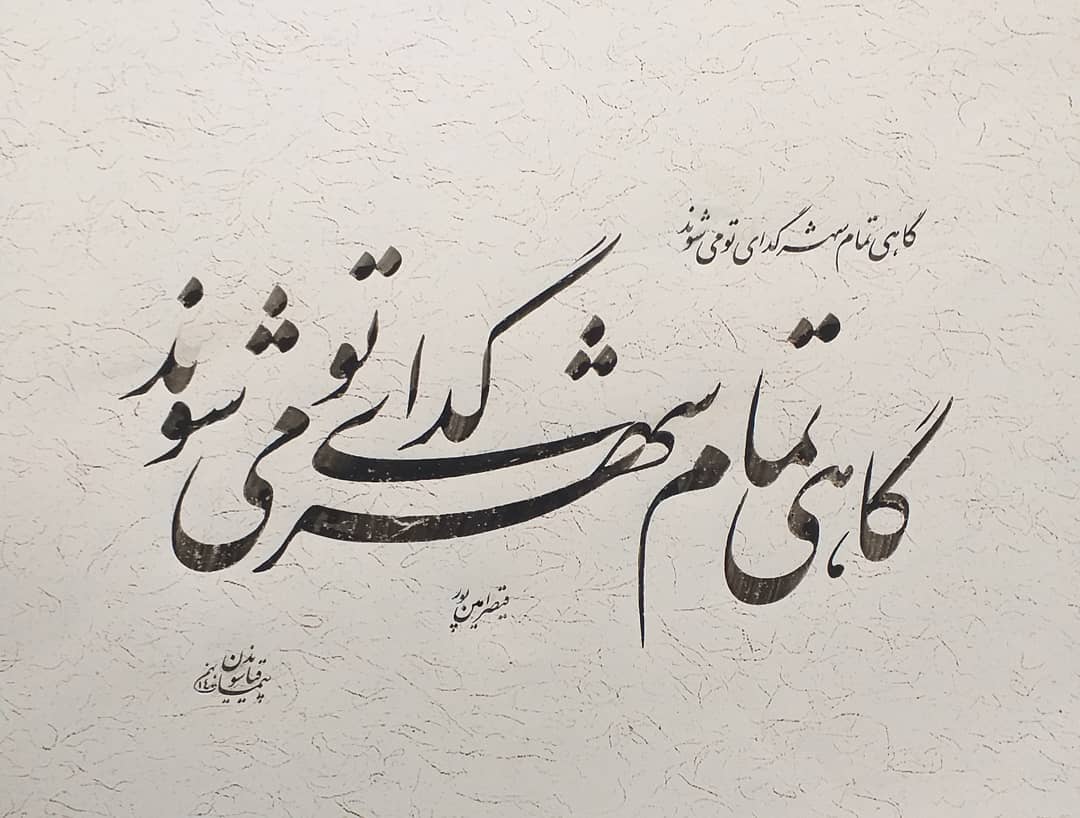 گاهی تمام شهر گدای تو می شوند
گاهی تمام شهر گدای تو می شوند
قیصر امین پور